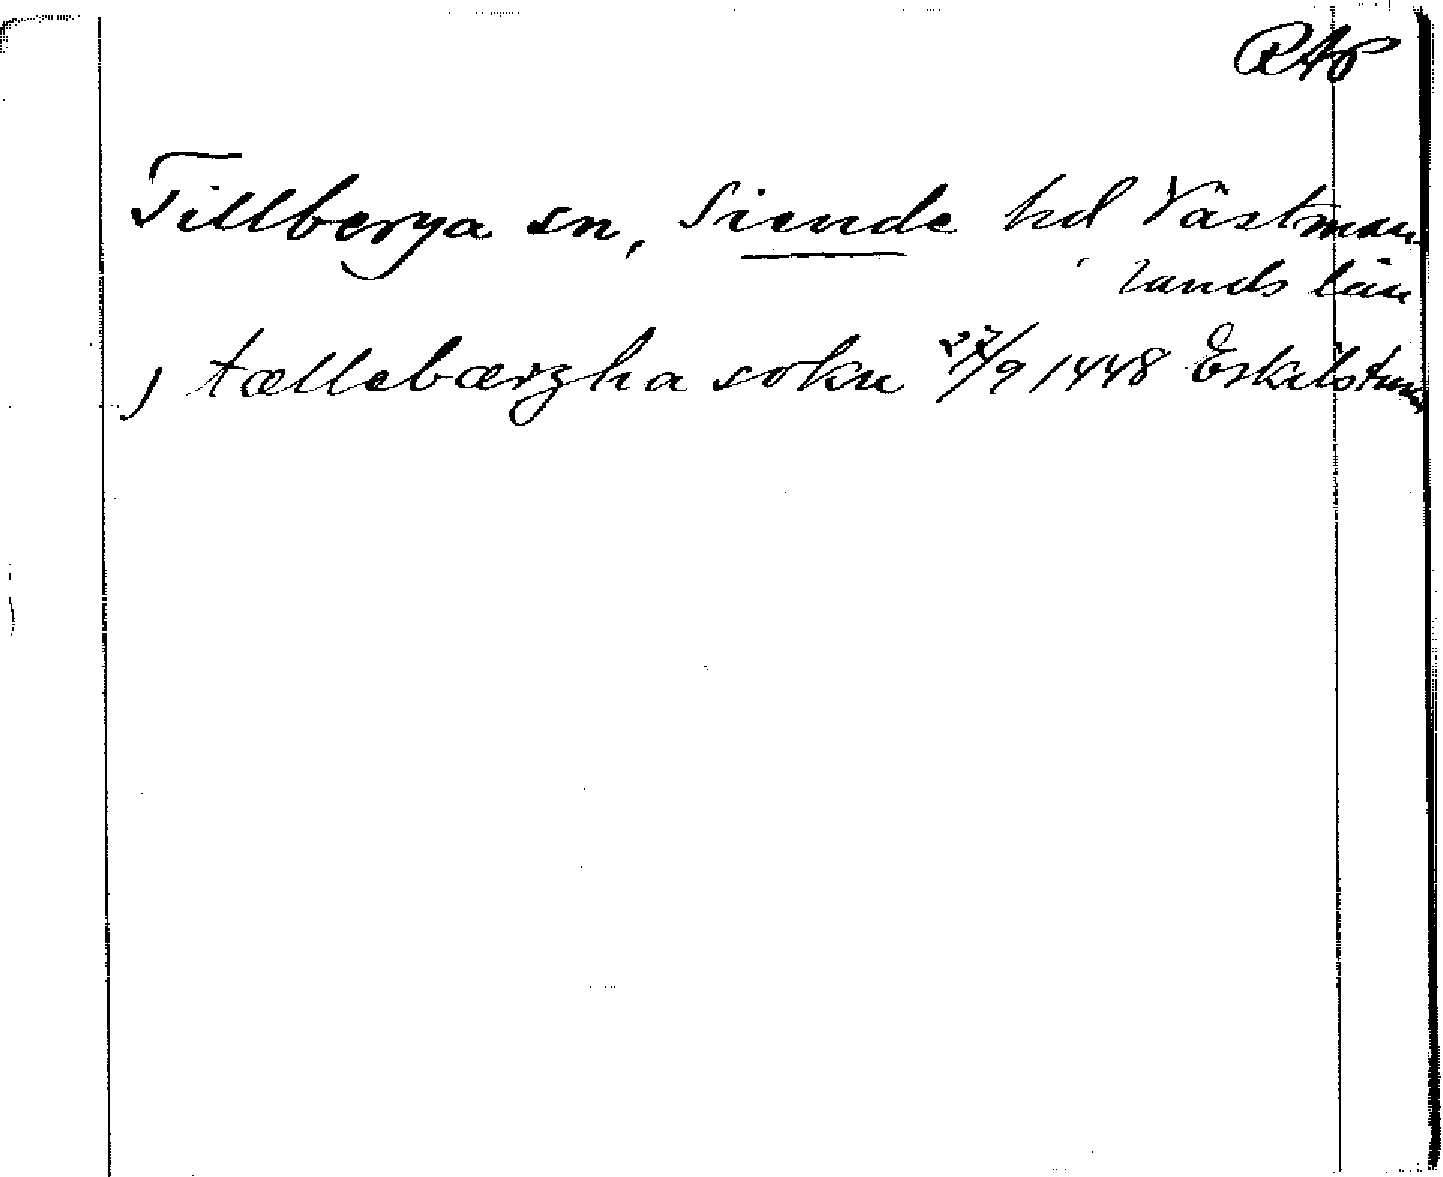 RAp
Tillberga sn, Siende hd Västman
lands län
j tællebærgha sokn 27/9 1448 Eskilstuna